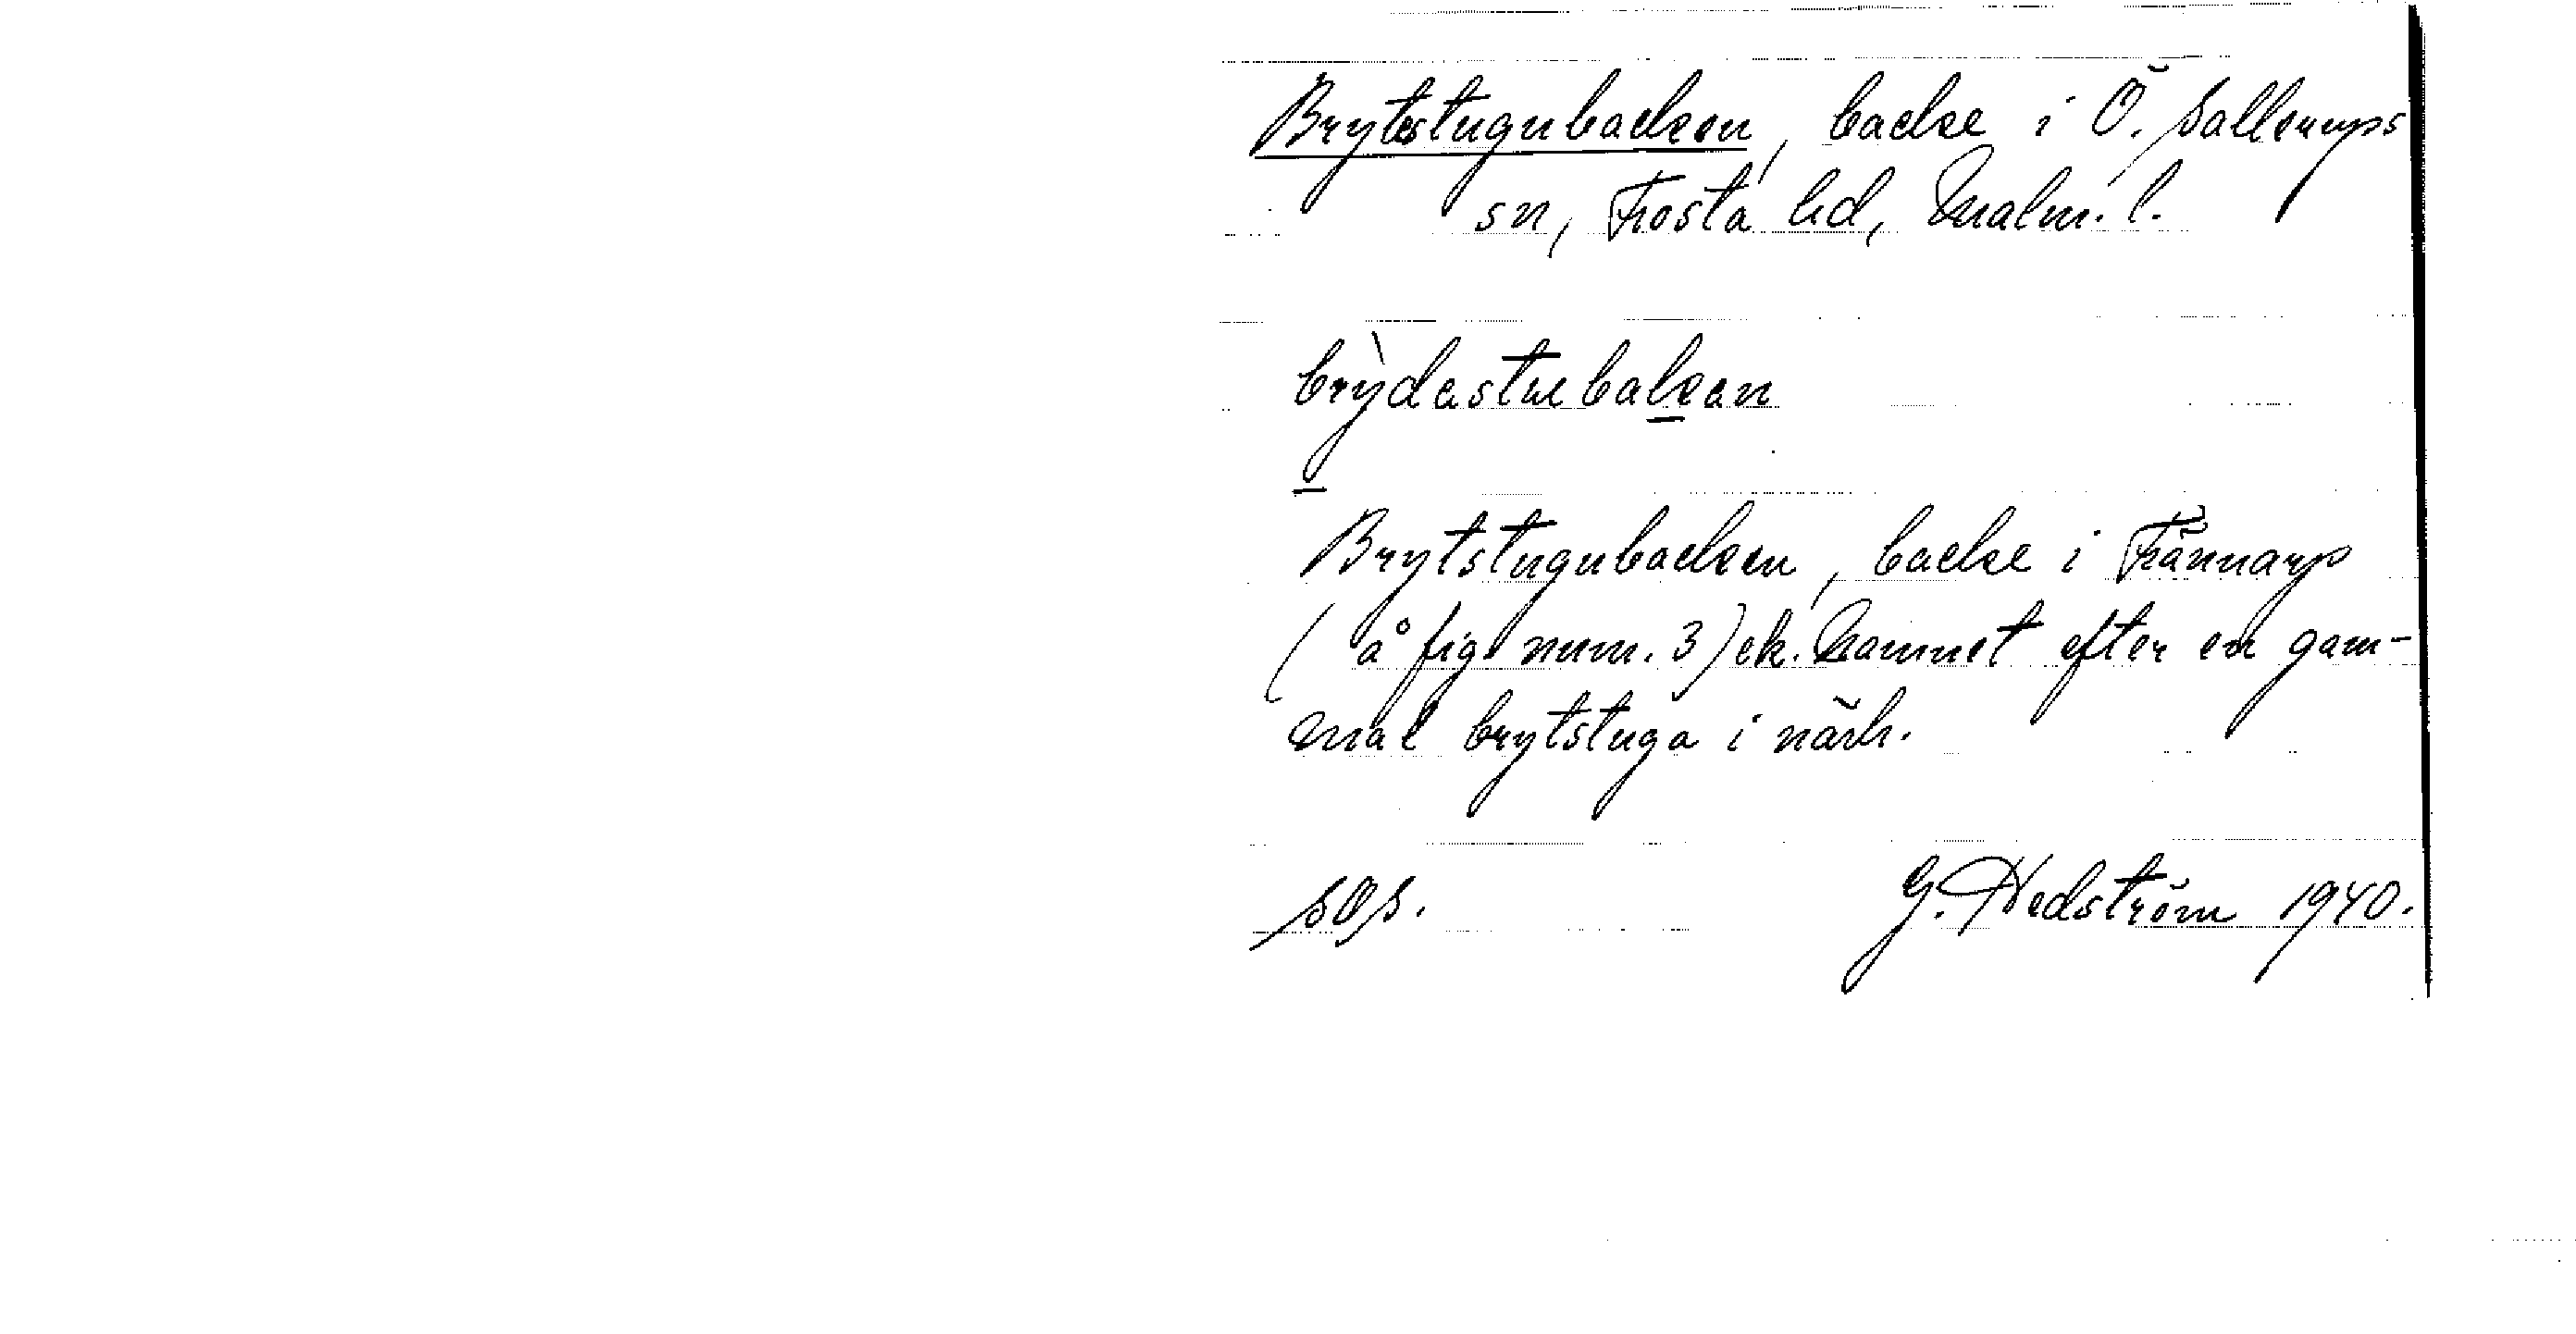 Brytstugubacken, backe i Ö. Sallerups
sn, Frosta hd, Malm. l.
brỳdastuebakan
Brytstugubacken, backe i Frännarp
(å fig num. 3) ek. Namnet efter en gam-
mal brytstuga i närh.
SOS. G. Hedström 1940.